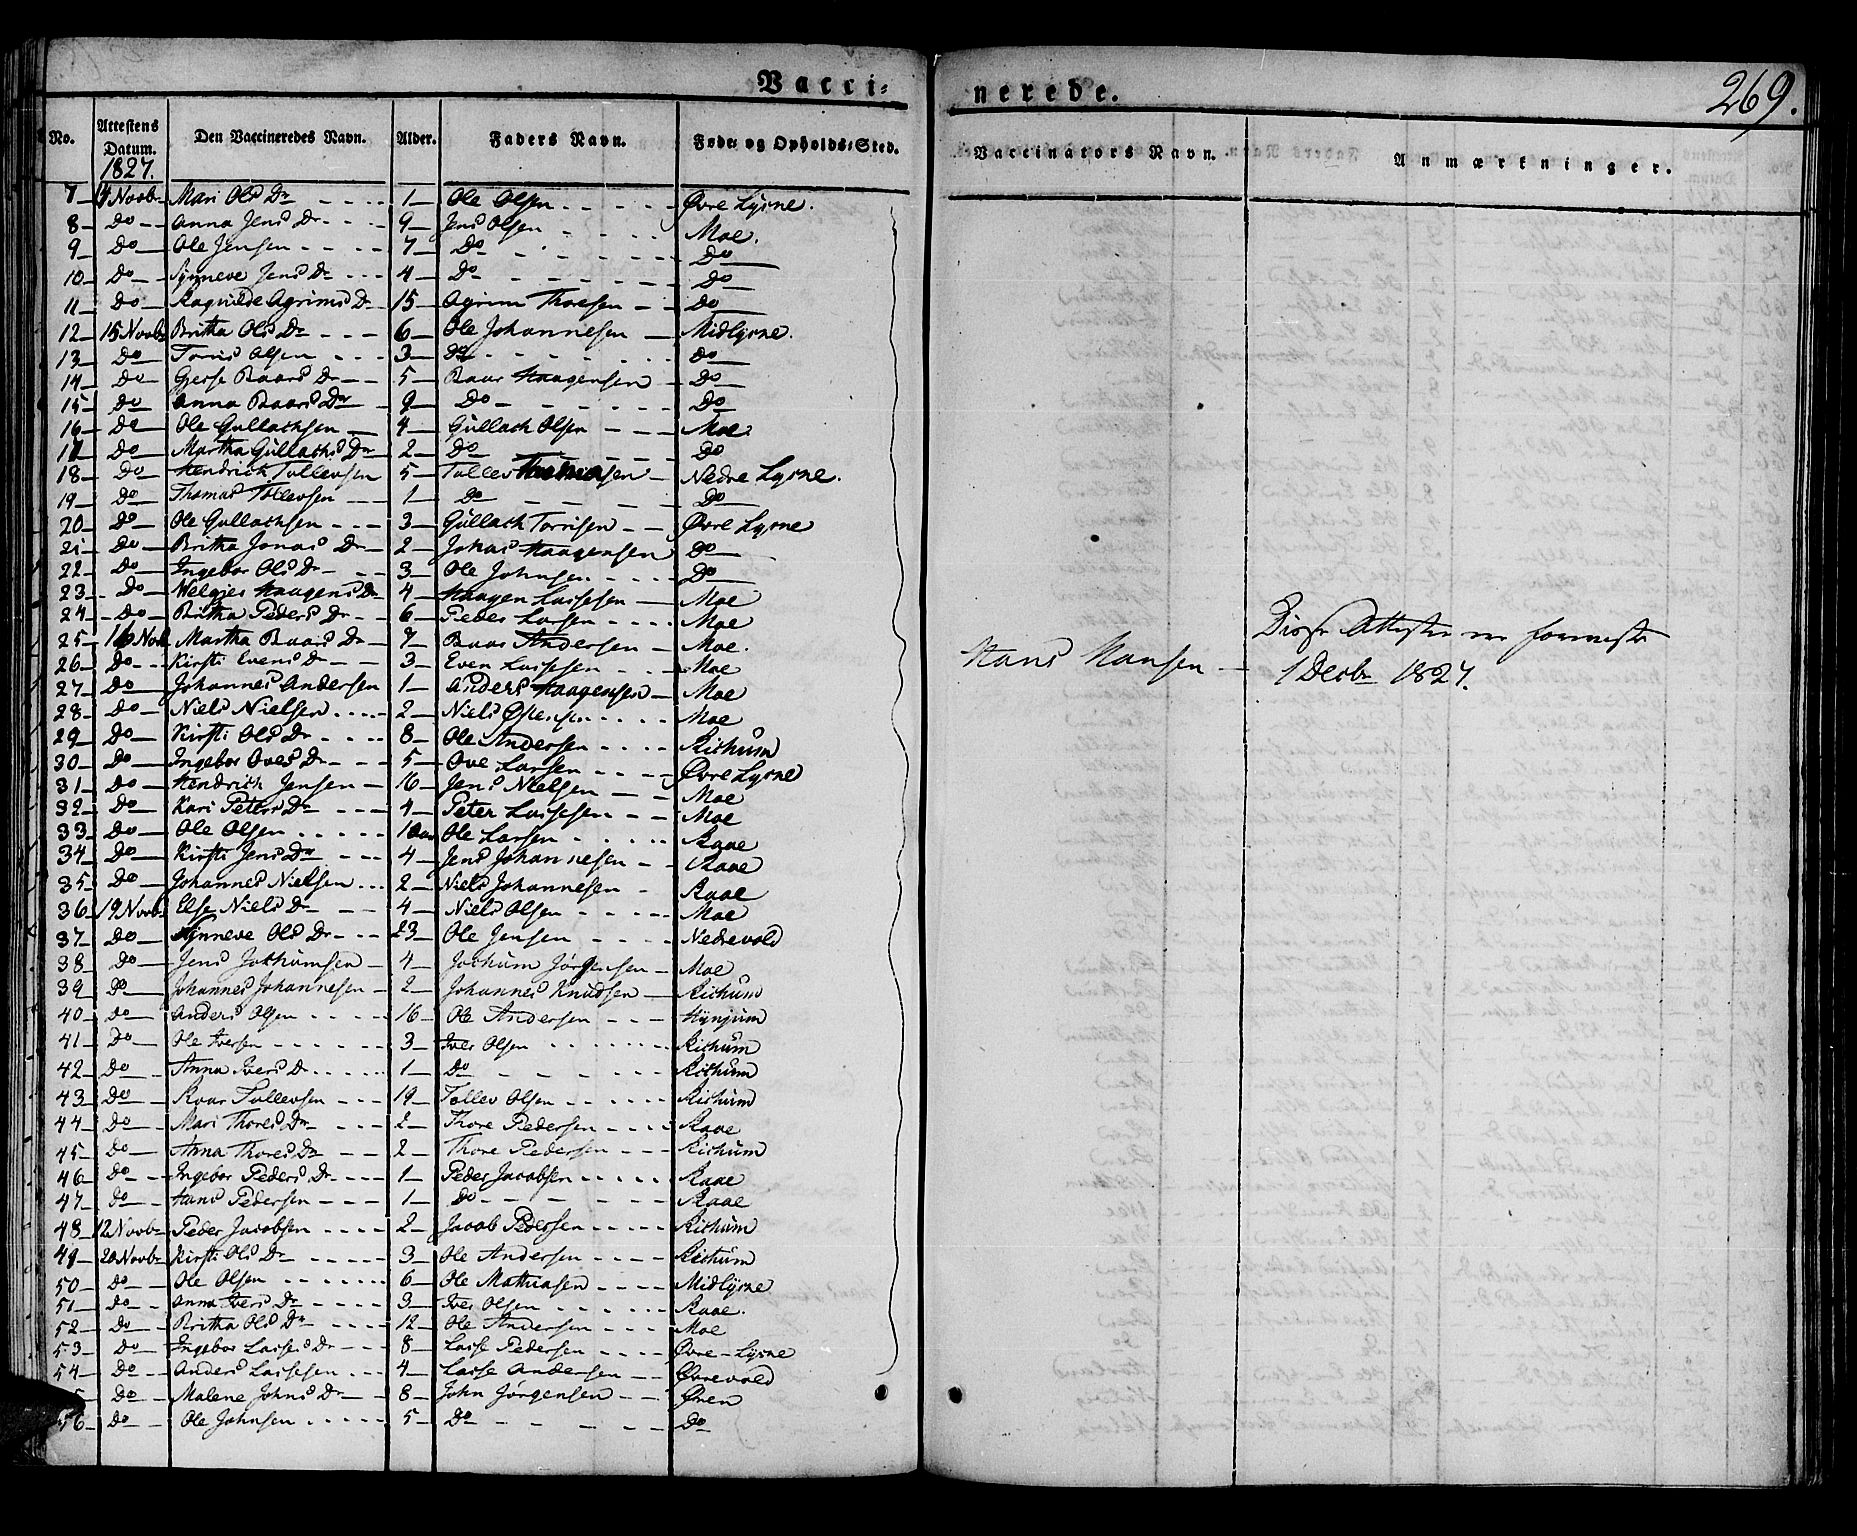 Vacci= nerede. 269.
No. Attestens Datum. 1827. Den Vaccineredes Navn. Alder. Faders Navn. Føde= og Opholds=Sted. Vaccinators Navn. Anmærkninger.
7 14 Novbr Mari Ols Dr 1 Ole Olsen Øvre Lysne.
8 Do Anna Jens Dr 9 Jens Olsen Moe.
9 Do Ole Jensen 7 Do Do
10 Do Synneve Jens Dr 4 Do Do
11 Do Ragnilde Agrims Dr 15 Agrim Thoresen Do
12 15 Novbr Britha Ols Dr 6 Ole Johannesen Midlysne.
13 Do Torris Olsen 3 Do Do
14 Do Gjerse Baars Dr 5 Baar Haagensen Do
15 Do Anna Baars Dr 9 Do Do
16 Do Ole Gullachsen 4 Güllach Olsen Moe.
17 Do Martha Güllachs Dr 2 Do Do
18 Do Hendrich Tollevsen 5 Tollev Nedre Lysne.
19 Do Thomas Tollevsen 1 Do Do
20 Do Ole Gullachsen 3 Güllach Torrisen Øvre Lysne
21 Do Britha Jonas Dr 2 Johas Haagensen Do
22 Do Ingebor Ols Dr 3 Ole Johnsen Do
23 Do Haagens Dr 4 Haagen Lassesen Moe
24 Do Britha Peders Dr 6 Peder Larsen Moe
25 16 Novb Martha Baars Dr 7 Baar Andersen Moe.
26 Do Kirsti Evens Dr 3 Even Lassesen Moe
27 Do Johannes Andersen 1 Anders Haagensen Moe
28 Do Niels Nielsen 2 Niels Østensen Moe
29 Do Kirsti Ols Dr 8 Ole Andersen Richüm
30 Do Ingebor Oves Dr 5 Ove Larsen Øvre Lysne
31 Do Hendrich Jensen 16 Jens Nielsen Moe
32 Do Kari Peters Dr 4 Peter Lassesen Moe
33 Do Ole Olsen Ole Larsen Raae
34 Do Kirsti Jens Dr 4 Jens Johannesen Raae
35 Do Johannes Nielsen 2 Niels Johannesen Raae
36 19 Novb Else Niels Dr 4 Niels Olsen Moe
37 Do Synneve Ols Dr 23 Ole Jensen Nedrevold
38 Do Jens Jochümsen 4 Jochüm Jørgensen Moe
39 Do Johannes Johannesen 2 Johannes Knudsen Richüm
40 Do Anders Olsen 16 Ole Andersen Hynjüm
41 Do Ole Iversen 3 Iver Olsen Richüm
42 Do Anna Ivers Dr 1 Do Richüm
43 Do Roar Tollevsen 19 Tollev Olsen Richüm
44 Do Mari Thores Dr 2 Thore Pedersen Raae
45 Do Anna Thores Dr 2 Thore Pedersen Richüm
46 Do Ingebor Peders Dr 1 Peder Jacobsen Raae
47 Do Hans Pedersen 1 Do Raae
48 12 Novbr Peder Jacobsen 2 Jacob Pedersen Richüm
49 20 Novbr Kirsti Ols Dr 3 Ole Andersen Richüm
50 Do Ole Olsen 6 Ole Mathiasen Midlysne
51 Do Anna Ivers Dr 3 Iver Olsen Raae.
52 Do Britha Ols Dr 12 Ole Andersen Moe
53 Do Ingebor Lasses Dr 8 Lasse Pedersen Øvre-Lysne
54 Do Anders Lassesen 4 Lasse Andersen Øvrevold
5 Do Malene Johns Dr 8 John Jørgensen Øren
56 Do Ole Johnsen 5 Do Do
Hans Hansen
Disse Attester
1 Decbr 1827.